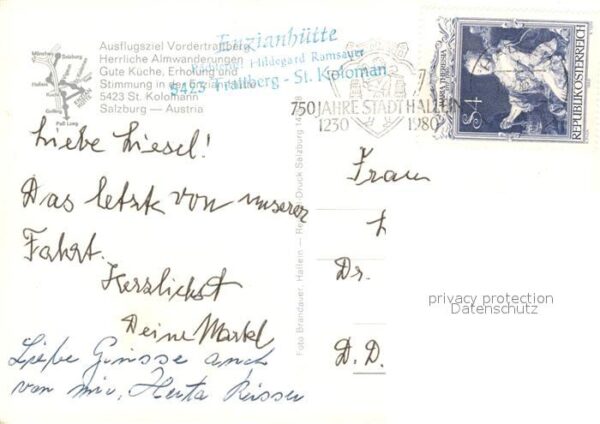 Ausflugsziel Vordertrattberg
Herrliche Almwanderungen
Gute Küche, Erholung und
Stimmung in der Enzianhütte
5423 St. Kolomann
Salzburg — Austria
München
Salzburg
Hallein
Golling
Paß Lueg
Enzianhütte
Hildegard Ramsauer
5423 Trattberg - St. Koloman
750 JAHRE STADT HALLEIN
1230 1980
MARIA THERESIA
S 4
REPUBLIK ÖSTERREICH
Liebe Liesel!
Das letzte von unserer
Fahrt.
Herzlichst
Deine
Liebe Grüsse auch
von mir, Herta
Foto Brandauer, Hallein — Druck Salzburg
Frau
Dr.
D. D.
privacy protection
Datenschutz